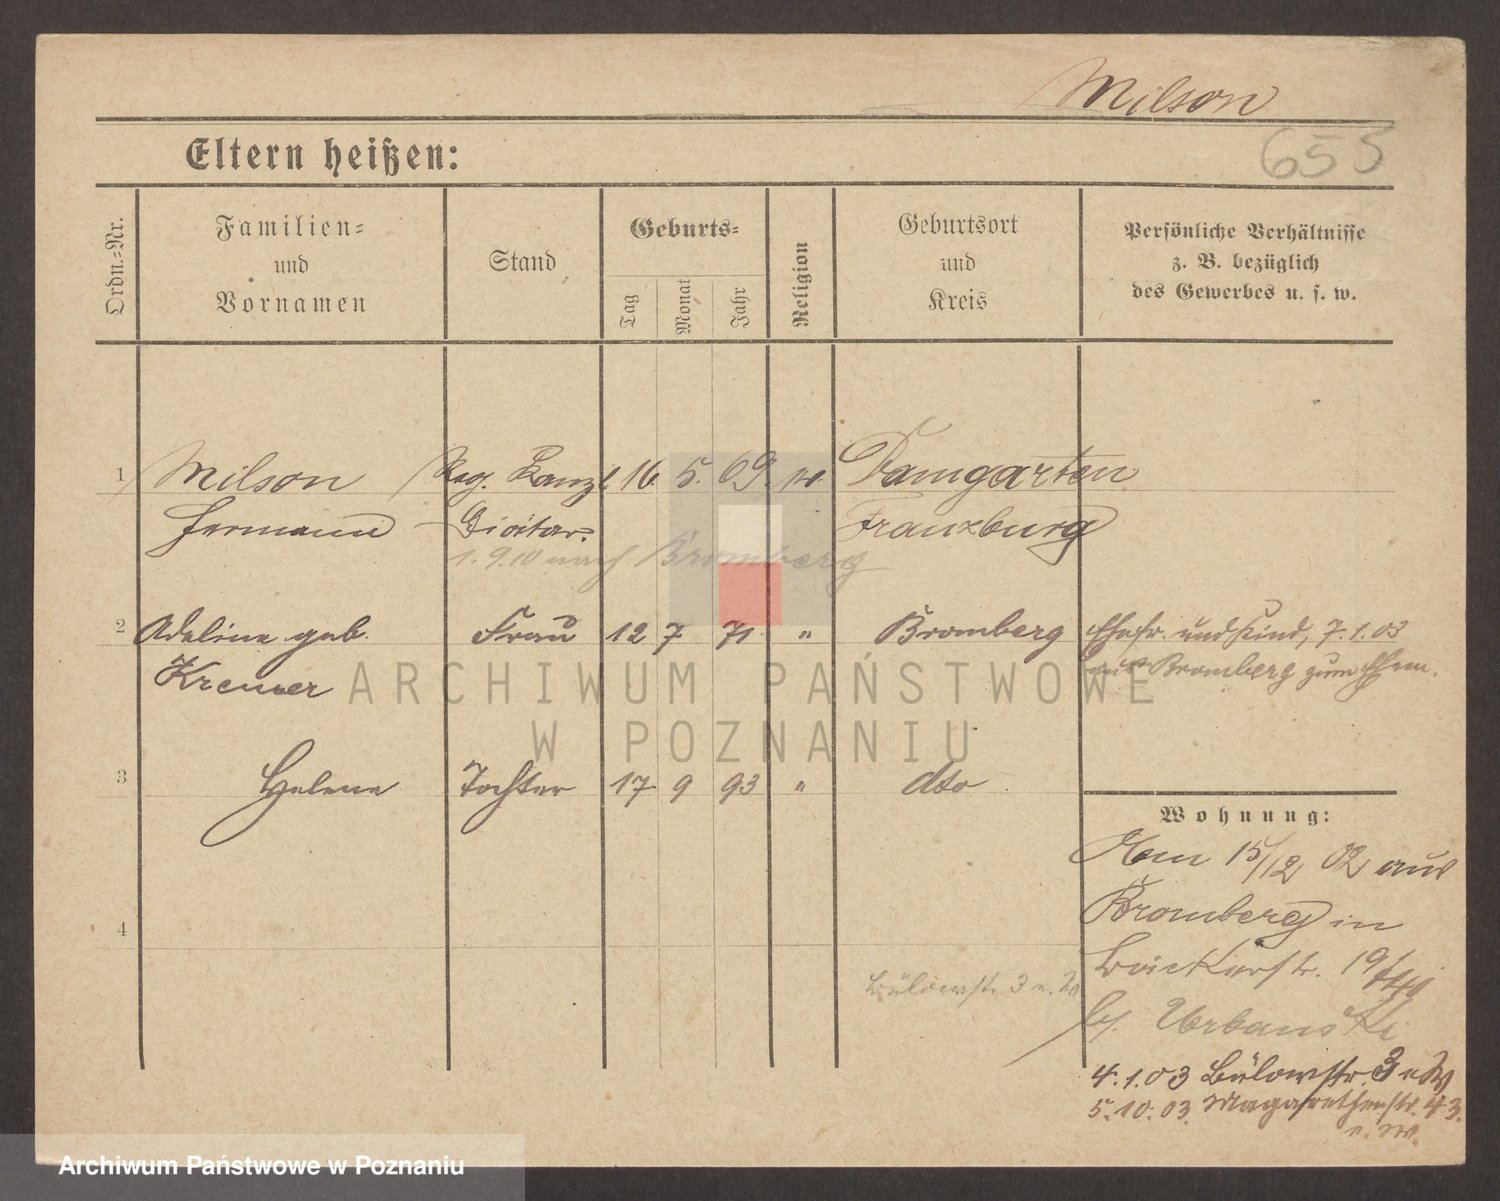 Milson
655
Eltern heißen:
Ordn.-Nr.
Familien-
und
Vornamen
Stand
Geburts-
Tag
Monat
Jahr
Religion
Geburtsort
und
Kreis
Persönliche Verhältnisse
z. B. bezüglich
des Gewerbes u. s. w.
1 Milson Reg. Kanzl. 16. 5. 69. Damgarten
Hermann Diätar. Franzburg
1.9.10 nach Bromberg
2 Adeline geb. Frau 12 7 71 " Bromberg Ehefr. und Kind, 7.1.03
aus Bromberg zum Ehem.
ARCHIWUM PAŃSTWOWE
W POZNANIU
3 Helene Tochter 17 9 93 " dto
Wohnung:
15/12 02 aus
Bromberg in
4
Bäckerstr. 19
Bülowstr. 3
b. Urbanski
4.1.03 Bülowstr. 3
5.10.03. Magarethenstr. 43.
Archiwum Państwowe w Poznaniu